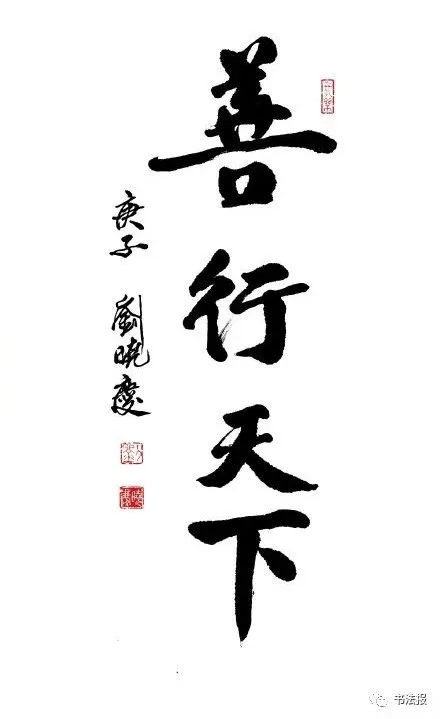 善行天下
庚子 劉曉慶
书法报